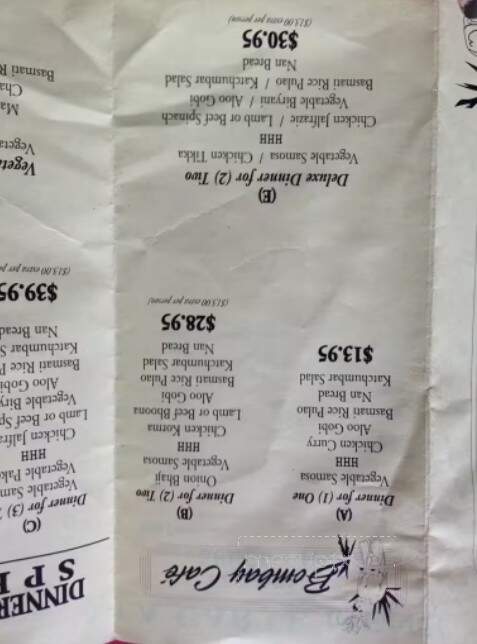 Bombay Café
(A)
Dinner for (1) One
Vegetable Samosa
HHH
Chicken Curry
Aloo Gobi
Basmati Rice Pulao
Nan Bread
Katchumbar Salad
$13.95
(B)
Dinner for (2) Two
Onion Bhaji
Vegetable Samosa
HHH
Chicken Korma
Lamb or Beef Bhoona
Aloo Gobi
Basmati Rice Pulao
Katchumbar Salad
Nan Bread
$28.95
($13.00 extra per person)
(E)
Deluxe Dinner for (2) Two
Vegetable Samosa / Chicken Tikka
HHH
Chicken Jalfrazie / Lamb or Beef Spinach
Vegetable Biryani / Aloo Gobi
Basmati Rice Pulao / Katchumbar Salad
Nan Bread
$30.95
($13.00 extra per person)
DINNER
S P
(C)
Dinner for (3)
Vegetable Sam
Vegetable Pako
HHH
Chicken Jalfra
Lamb or Beef Sp
Vegetable Biry
Aloo Gobi
Basmati Rice P
Katchumbar S
Nan Bread
$39.95
($13.00 extra per
Vegeta
Vegeta
Ma
Cha
Basmati R